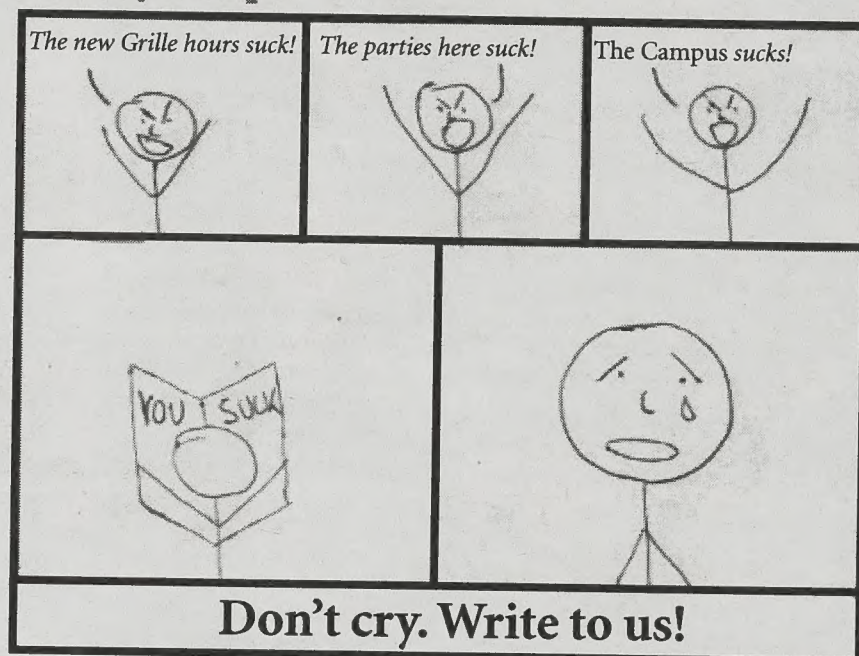 The new Grille hours suck!
The parties here suck!
The Campus sucks!
YOU SUCK
Don't cry. Write to us!